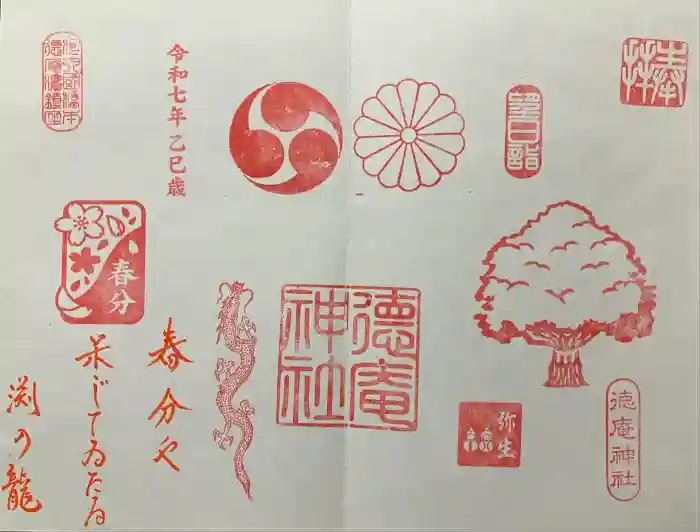 奉拝
朔日詣
徳庵神社
弥生
徳庵神社
令和七年乙巳歳
春分
春分や
淵の龍